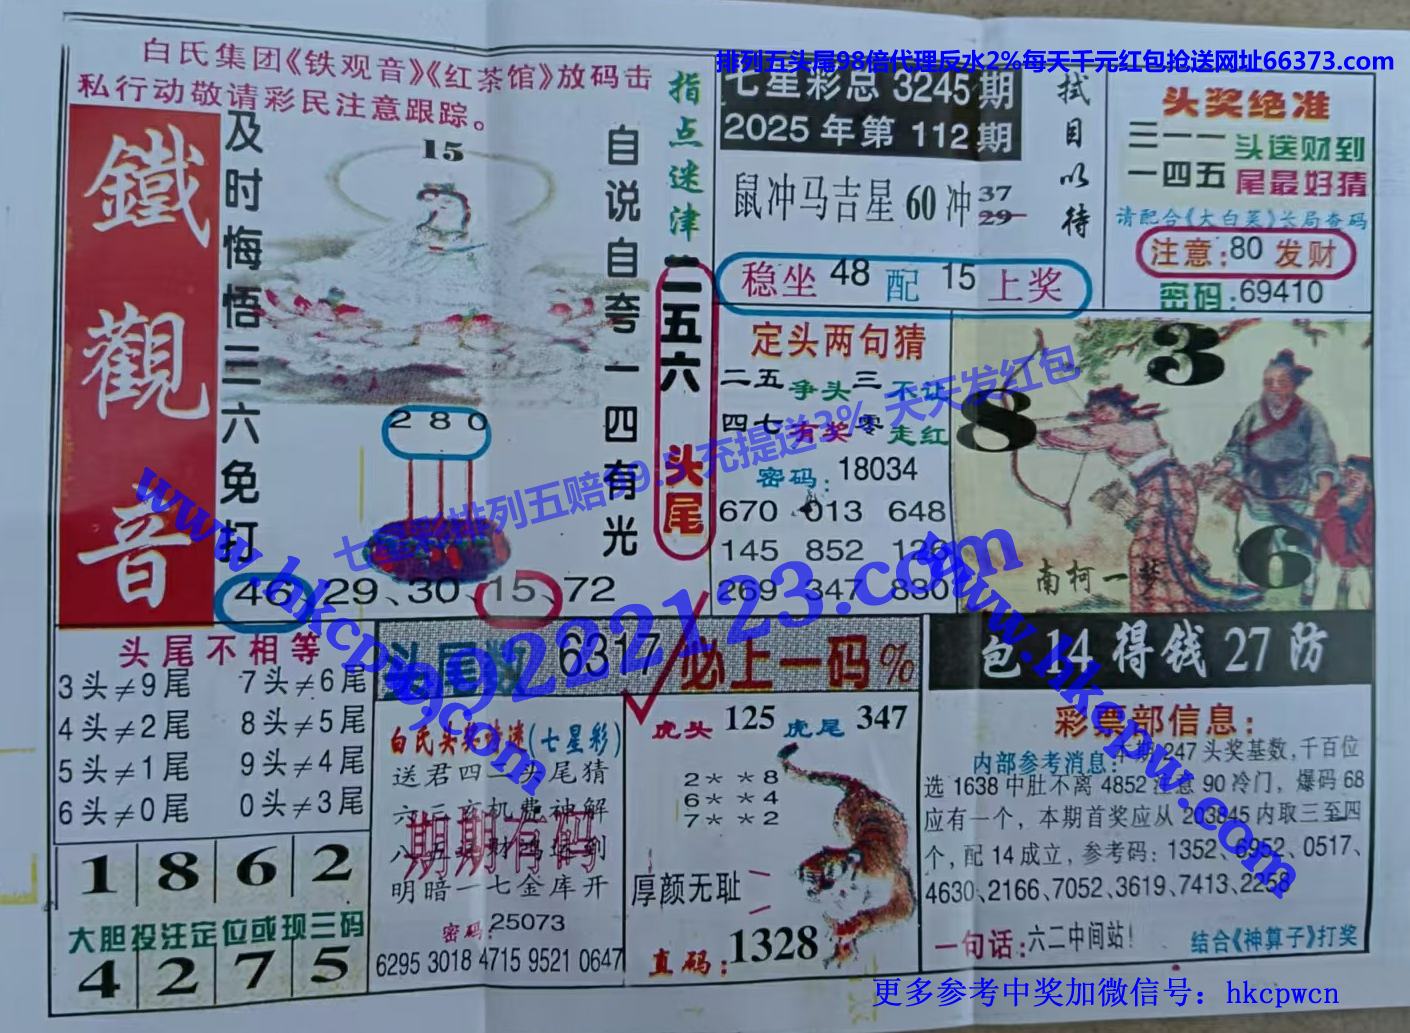 排列五头尾98倍代理反水2%每天千元红包抢送网址66373.com
白氏集团《铁观音》《红茶馆》放码击
私行动敬请彩民注意跟踪。
鐵觀音
及时悔悟三六免打
15
280
自说自夸一四有光
46、29、30、15、72
指点迷津
二五六头尾
七星彩总3245期
2025年第112期
拭目以待
鼠冲马吉星60冲37
29
稳坐48配15上奖
头奖绝准
三一一头送财到
一四五尾最好猜
请配合《大白菜》长局查码
注意:80发财
密码:69410
定头两句猜
二五争头三不让
四七有奖零走红
密码:18034
670 013 648
145 852 126
269 347 830
3
8
6
南柯一梦
七星彩排列五赔99.5 充提送3% 天天发红包
www.hkcpw.com
99222123.com
www.hkcpw.com
头尾不相等
3头≠9尾 7头≠6尾
4头≠2尾 8头≠5尾
5头≠1尾 9头≠4尾
6头≠0尾 0头≠3尾
1 8 6 2
大胆投注定位或现三码
4 2 7 5
头尾数6317必上一码%
白氏头奖诗迷(七星彩)
送君四二头尾猜
六三玄机费神解
明暗一七金库开
期期有码
密码:25073
6295 3018 4715 9521 0647
虎头125虎尾347
2**8
6**4
7**2
厚颜无耻
直码:1328
包14得钱27防
彩票部信息:
内部参考消息:本期247头奖基数,千百位
选1638中肚不离4852注意90冷门，爆码68
应有一个，本期首奖应从203845内取三至四
个，配14成立，参考码:1352、6952、0517、
4630、2166、7052、3619、7413、2258
一句话:六二中间站!
结合《神算子》打奖
更多参考中奖加微信号：hkcpwcn